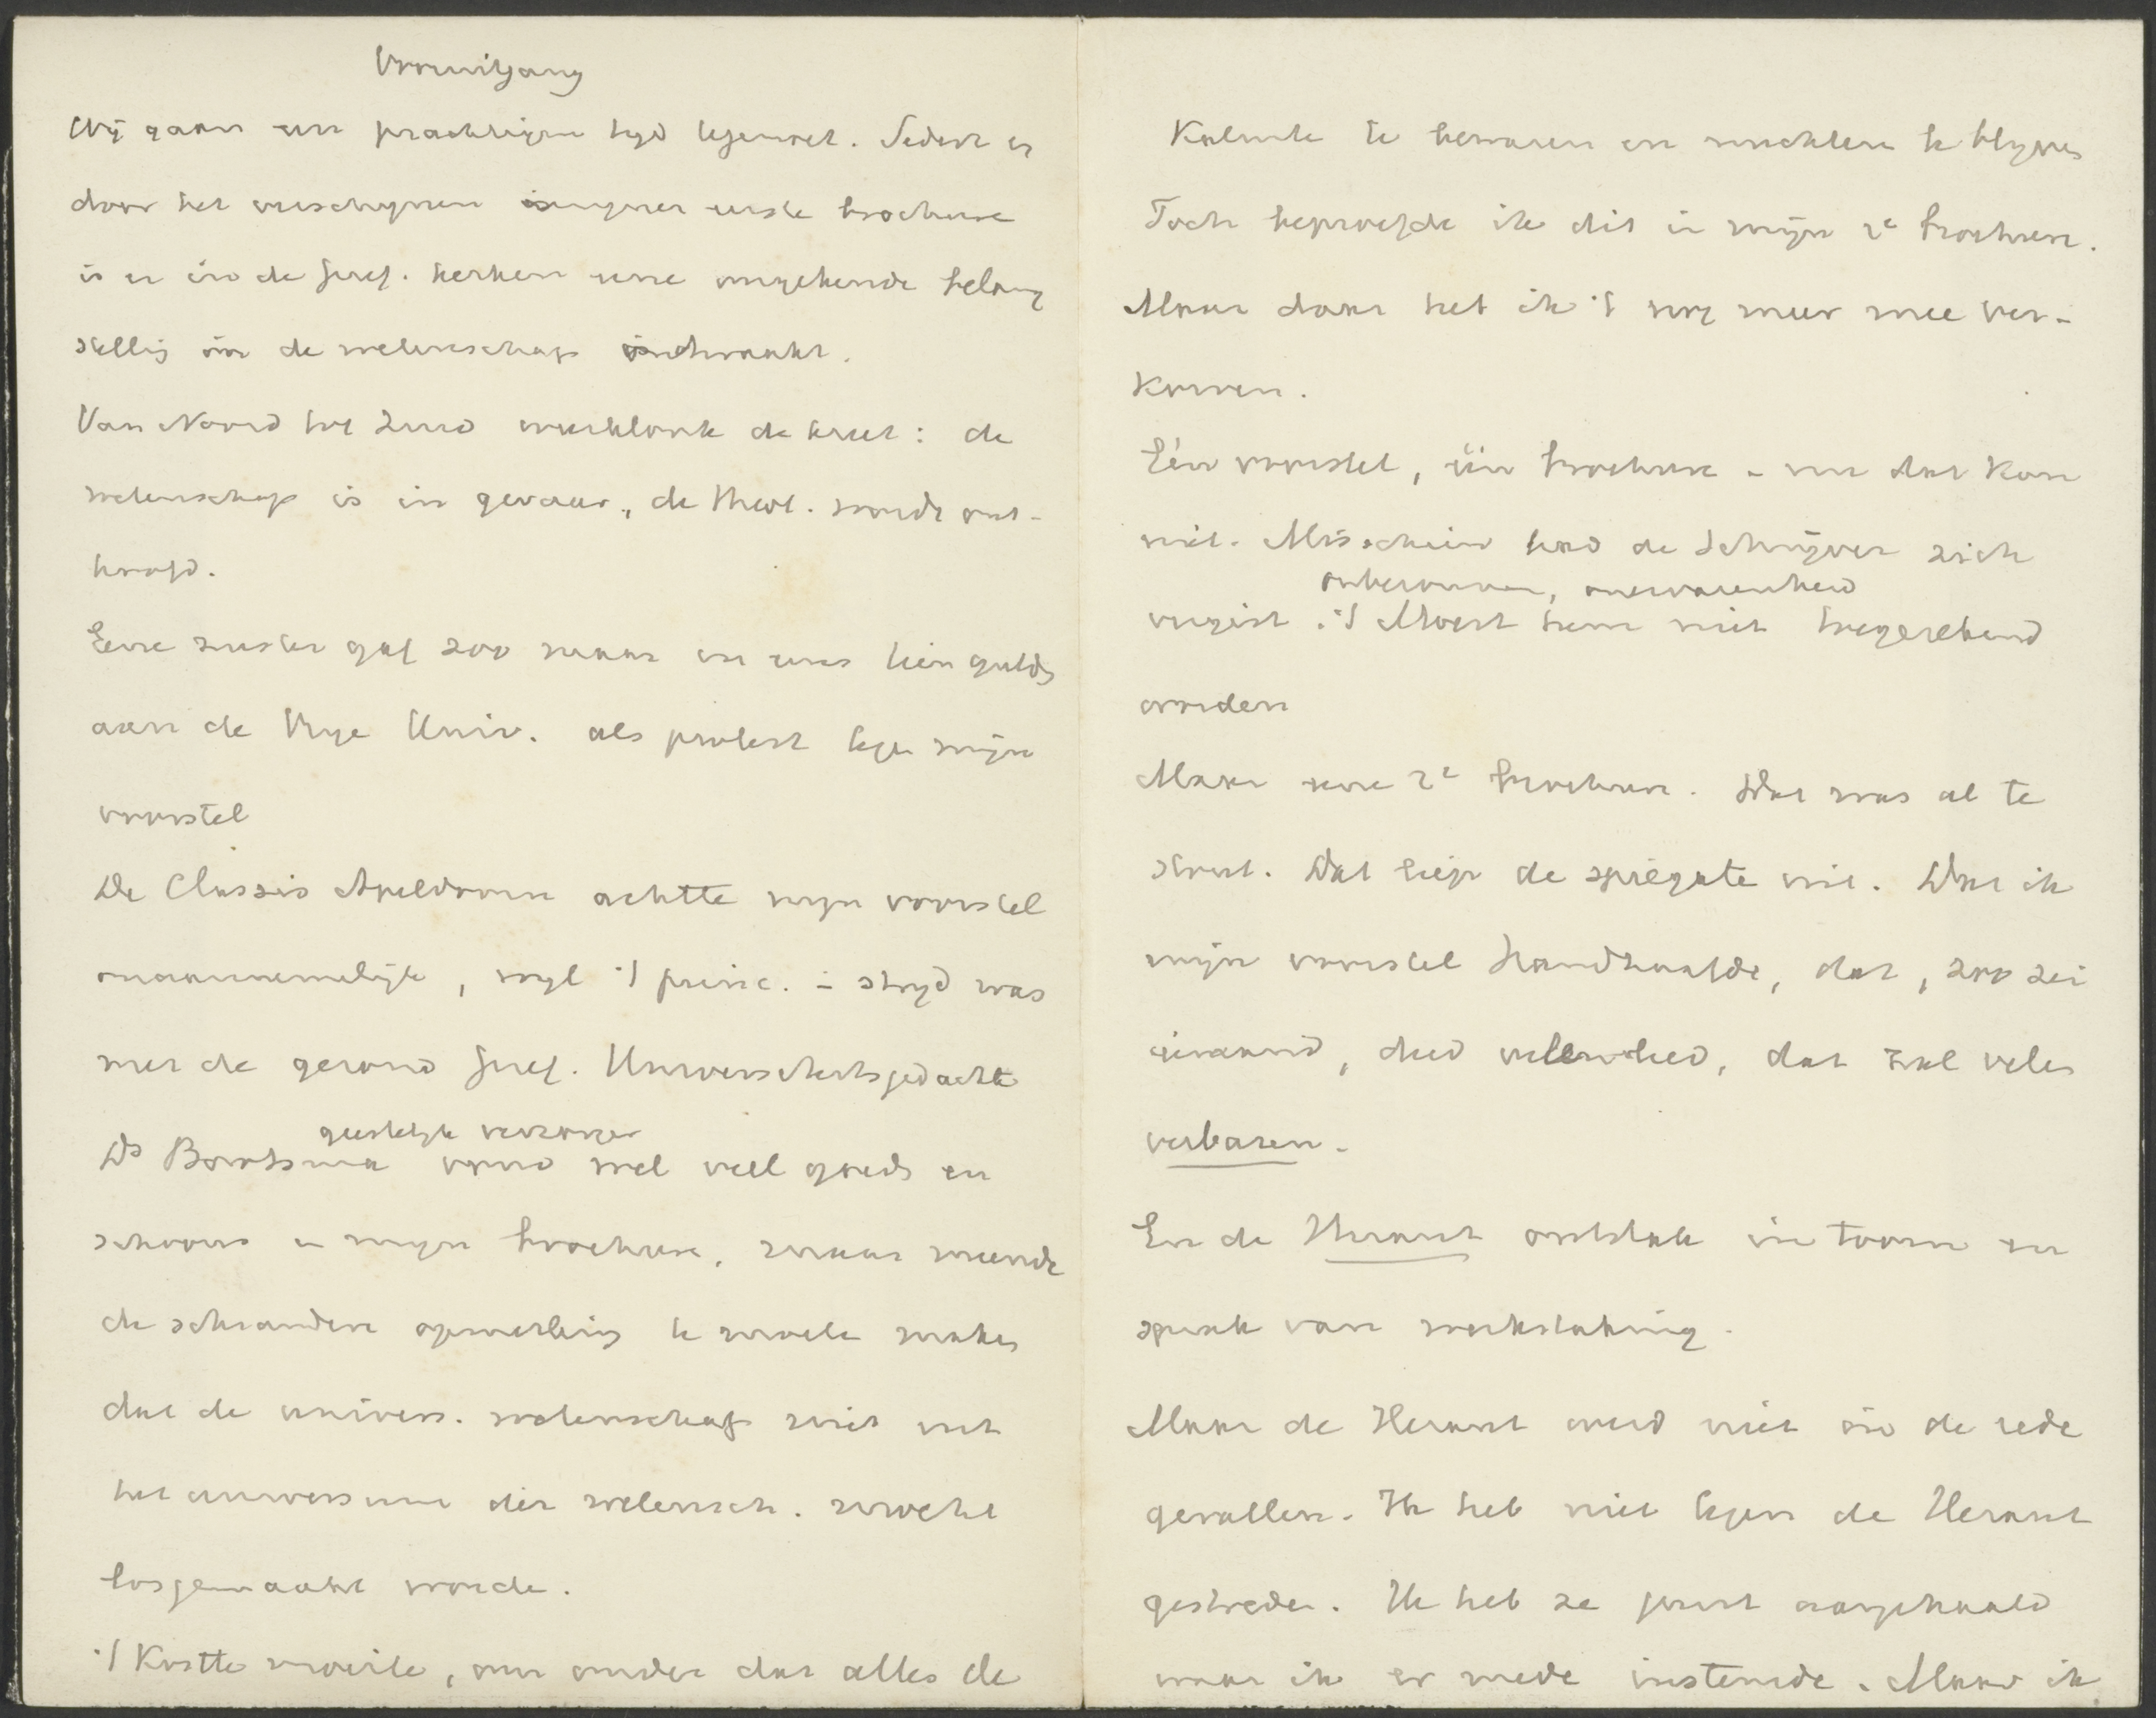 Vooruitgang
Wij gaan een prachtigen tijd tegemoet. Sedert er
door het verschijnen mijner eerste brochure
is er in de Geref. Kerken eene ongekende belang
stelling in de wetenschap ontwaakt.
Van Noord tot Zuid weerklonk de kreet: de
wetenschap is in gevaar, de theol. wordt ont-
hoofd.
Eene zuster gaf zoo maar in eens tien gulds
aan de Vrye Univ. als protest tegen mijn
voorstel
De Classis Apeldoorn achtte mijn voorstel
onaannemelijk, wyl 't princ. in stryd was
met de gezond Geref. Universiteitsgedachte
geestelyk verzorger
Ds Bootsma vond wel veel goeds en
schoons in myn brochure, maar meende
de schrandere opmerking te moeten maken
dat de univers. wetenschap niet uit
het universum der wetensch. mocht
losgemaakt worden.
't Kostte moeite, om onder dat alles de
Kalmte te bewaren en nuchter te blyven
Toch beproefde ik dit in mijn 2e brochure.
Maar daar heb ik 't nog meer mee ver-
korven.
Eén voorstel, één brochure - nu dat kon
nit. Misschien had de Schrijver zich
onbezonnen, onervarenheid
vergist. 't Moest hem niet toegerekend
worden
Maar eene 2e brochure. Dat was al te
stout. Dat liep de spiegate uit. Dat ik
mijn voorstel handhaafde, dat, zoo zei
iemand, deed dat zal velen
verbazen.
En de Heraut ontstak in toorn en
sprak van werkstaking.
Maar de Heraut werd niet in de rede
gevallen. Ik heb niet tegen de Heraut
gestreden. Ik heb ze juist aangehaald
waar ik er mede instemde. Maar ik